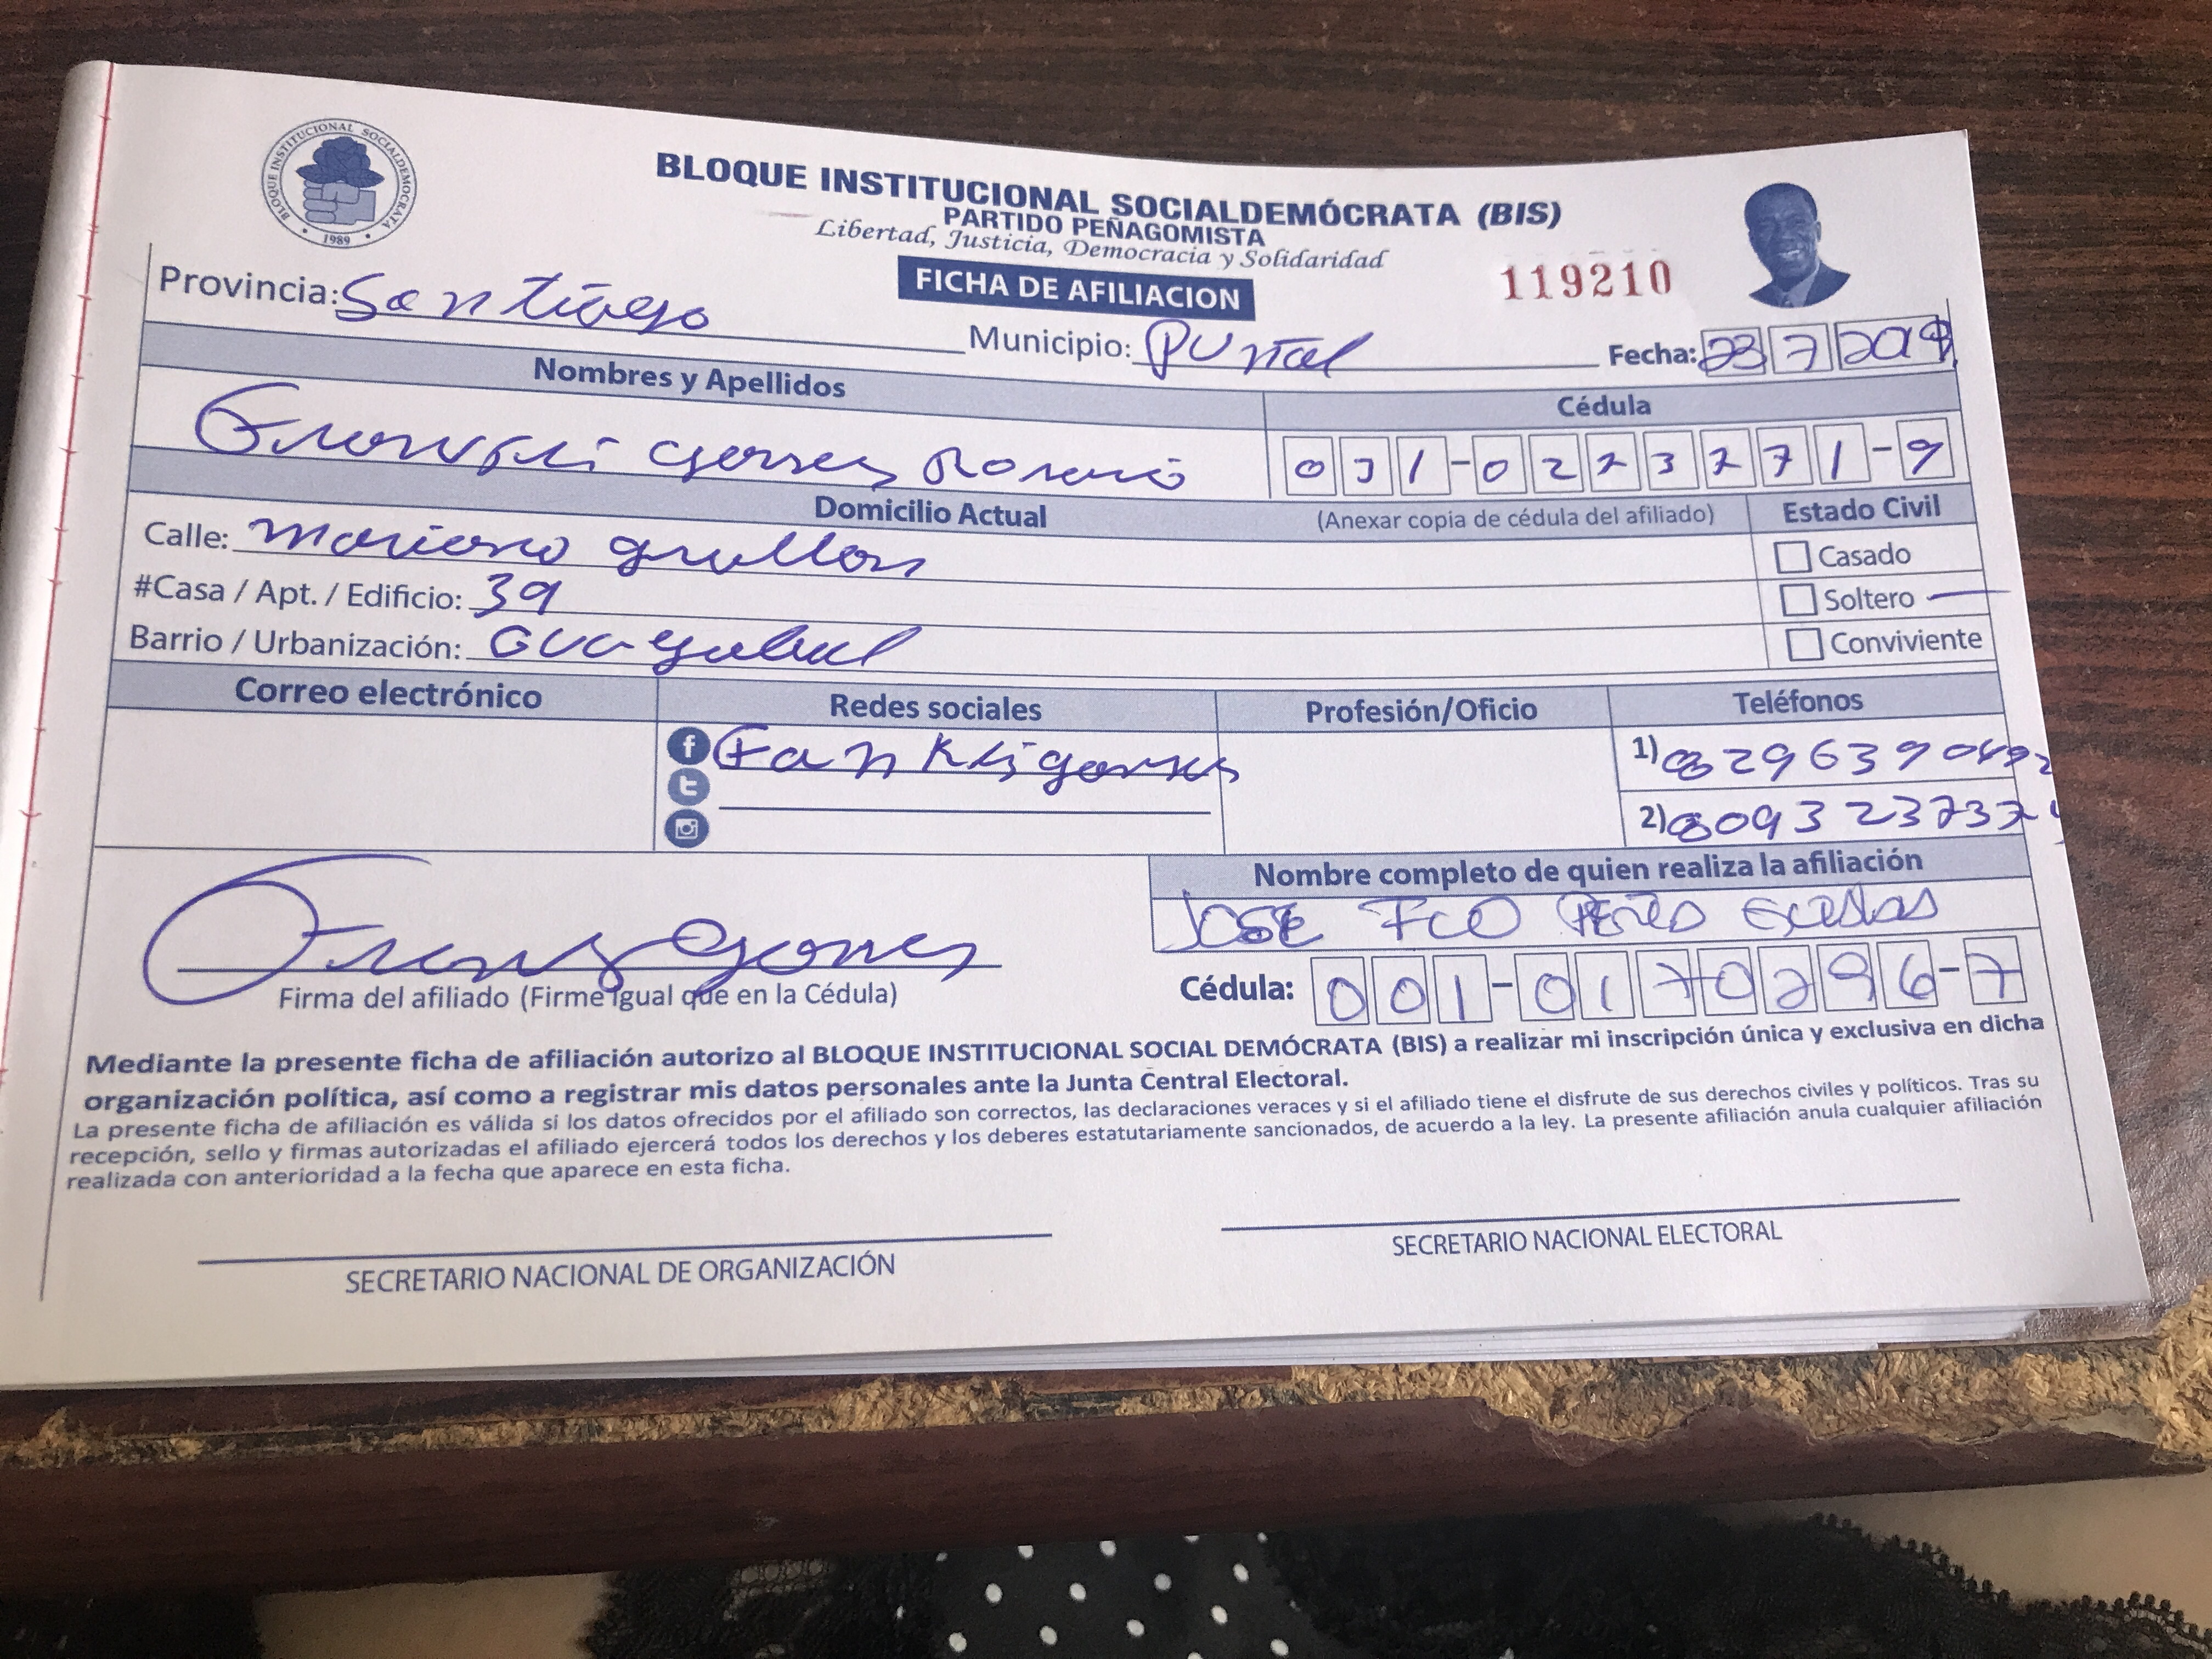 BLOQUE INSTITUCIONAL SOCIALDEMOCRATA
1989
BLOQUE INSTITUCIONAL SOCIALDEMÓCRATA (BIS)
PARTIDO PEÑAGOMISTA
Libertad, Justicia, Democracia y Solidaridad
FICHA DE AFILIACION
119210
Provincia: Santiago
Municipio: Puñal
Fecha: 23 7
Nombres y Apellidos
Cédula
Domicilio Actual
(Anexar copia de cédula del afiliado)
Estado Civil
Calle: Mariano grullon
Casado
#Casa / Apt. / Edificio: 39
Soltero
Barrio / Urbanización:
Conviviente
Correo electrónico
Redes sociales
Profesión/Oficio
Teléfonos
1)
2)
Nombre completo de quien realiza la afiliación
JOSE FCO
Firma del afiliado (Firme igual que en la Cédula)
Cédula: 001-0170296-7
Mediante la presente ficha de afiliación autorizo al BLOQUE INSTITUCIONAL SOCIAL DEMÓCRATA (BIS) a realizar mi inscripción única y exclusiva en dicha
organización política, así como a registrar mis datos personales ante la Junta Central Electoral.
La presente ficha de afiliación es válida si los datos ofrecidos por el afiliado son correctos, las declaraciones veraces y si el afiliado tiene el disfrute de sus derechos civiles y políticos. Tras su
recepción, sello y firmas autorizadas el afiliado ejercerá todos los derechos y los deberes estatutariamente sancionados, de acuerdo a la ley. La presente afiliación anula cualquier afiliación
realizada con anterioridad a la fecha que aparece en esta ficha.
SECRETARIO NACIONAL DE ORGANIZACIÓN
SECRETARIO NACIONAL ELECTORAL